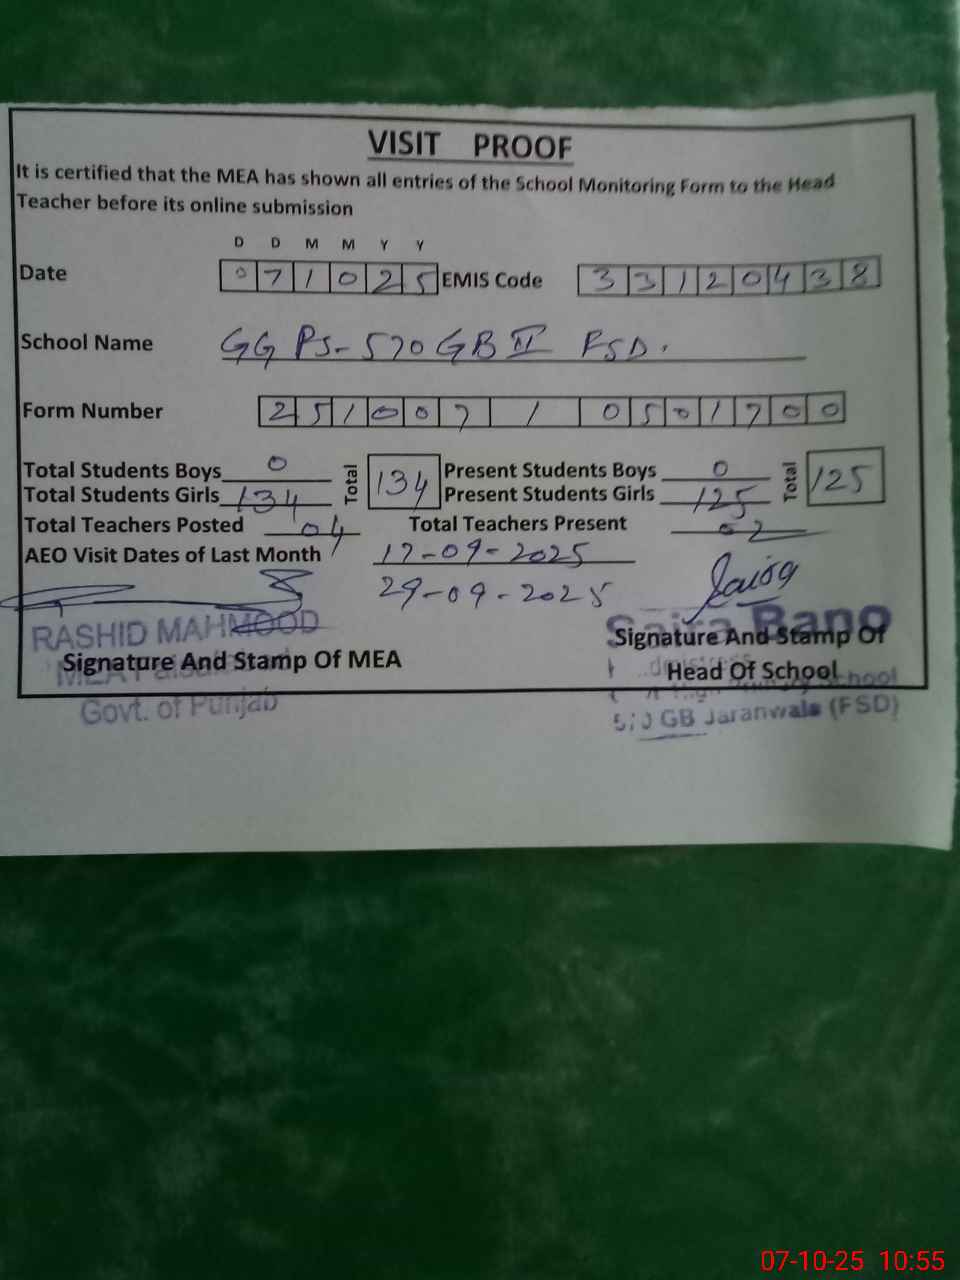 VISIT PROOF
It is certified that the MEA has shown all entries of the School Monitoring Form to the Head
Teacher before its online submission
D D M M Y Y
Date 0 7 1 0 2 5 EMIS Code 3 3 1 2 0 4 3 8
School Name GG PS- 570 GB II FSD.
Form Number 2 5 1 0 0 7 / 0 5 0 1 7 0 0
Total Students Boys 0 Total 134 Present Students Boys 0 Total 125
Total Students Girls 134 Present Students Girls 125
Total Teachers Posted 04 Total Teachers Present 02
AEO Visit Dates of Last Month 17-09-2025
29-09-2025
RASHID MAHMOOD
Saira Bano
Signature And Stamp Of MEA
Signature And Stamp Of
Head Of School
MEA
Govt. of Punjab
School
GB Jaranwala (FSD)
07-10-25 10:55